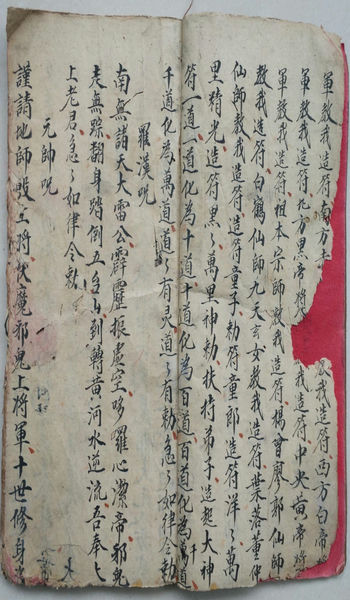 軍教我造符南方赤
教我造符西方白帝將
軍教我造符北方黑帝將
我造符中央黃帝將
軍教我造符祖本宗師教我造符楊曾廖郭仙師
教我造符白鶴仙師九天玄女教我造符葉落董仲
仙師教我造符童子勅符童郎造符洋々萬
里精光造符黑々萬里神勅扶持弟子造起大神
符一道一道化為十道十道化為百道百道化為千道
千道化為萬道道々有灵道々有勅急々如律令勅
羅漢咒
南無諸天大雷公霹靂振虛空哆羅心潔帝邪鬼
走無踪翻身踏倒五名山到轉黃河水逆流吾奉七
上老君急々如律令勅
元帥咒
謹請地師殷上將伏魔邪鬼上將軍十世修身